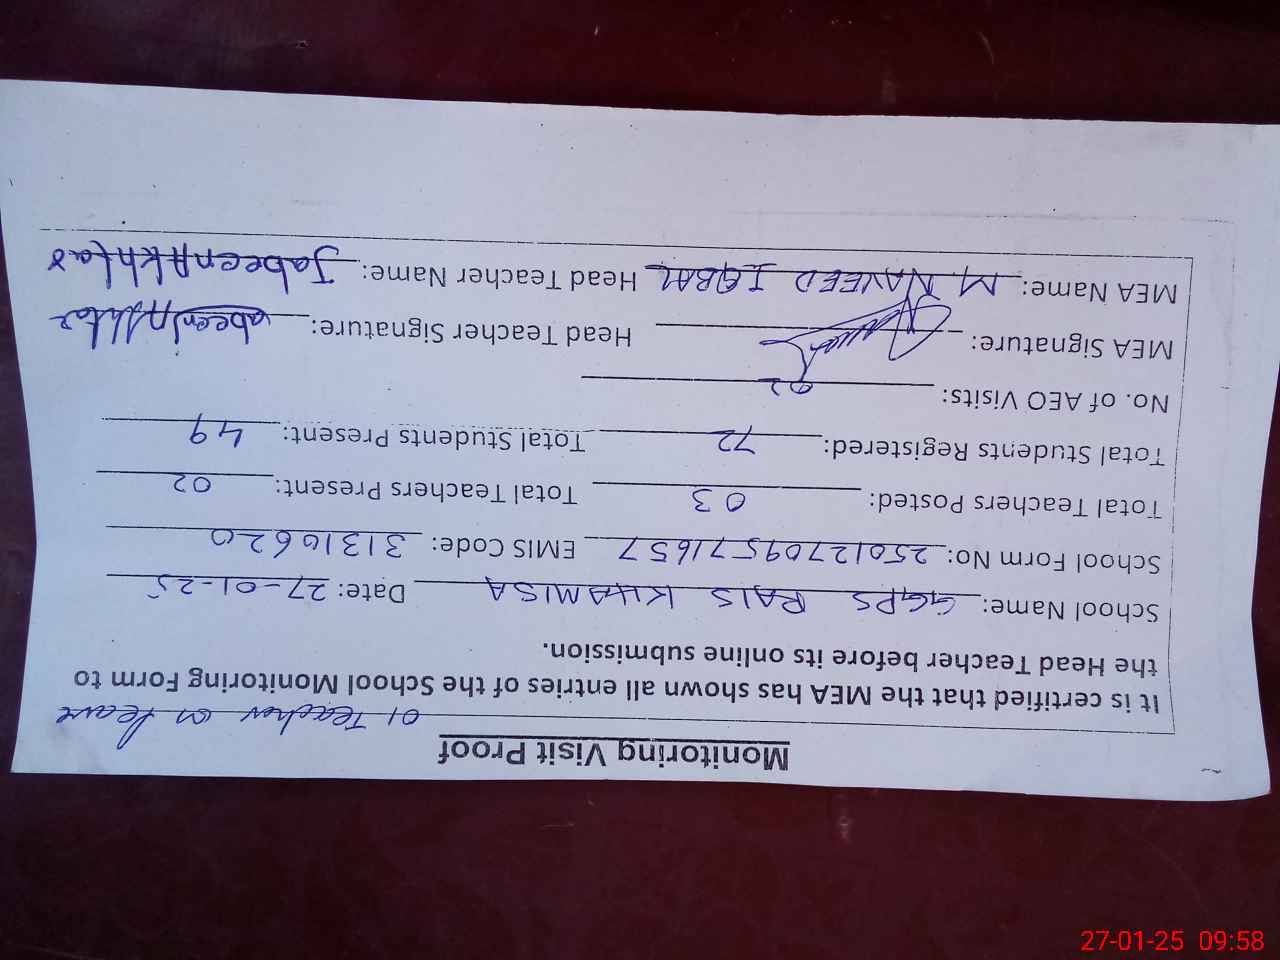 Monitoring Visit Proof
01 Teacher on leave
It is certified that the MEA has shown all entries of the School Monitoring Form to
the Head Teacher before its online submission.
School Name: GGPS RAIS KHAMISA Date: 27-01-25
School Form No: 25012709571657 EMIS Code: 31310620
Total Teachers Posted: 03 Total Teachers Present: 02
Total Students Registered: 72 Total Students Present: 49
No. of AEO Visits: 02
MEA Signature: Head Teacher Signature:
MEA Name: M. NAVEED IQBAL Head Teacher Name: Jabeen Akhtar
27-01-25 09:58